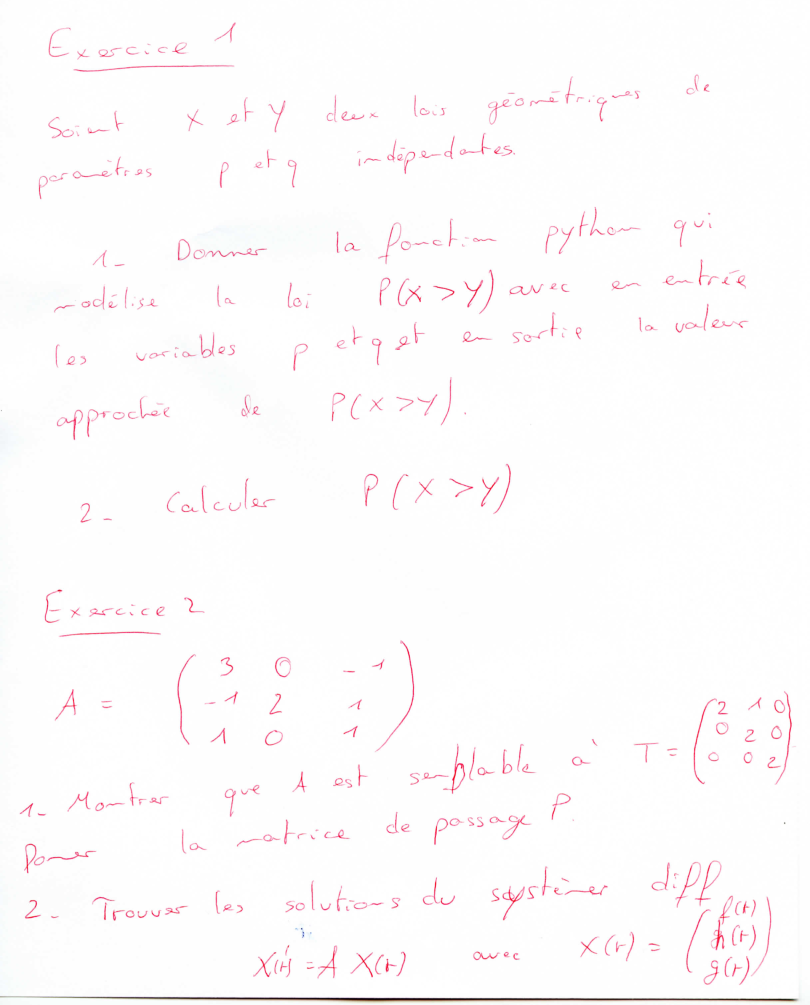 Exercice 1
Soient X et Y deux lois géométriques de
paramètres p et q indépendantes.
1- Donner la fonction python qui
modélise la loi P(X > Y) avec en entrée
les variables p et q et en sortie la valeur
approchée de P(X > Y).
2- Calculer P(X > Y)
Exercice 2
A = ( 3 0 -1
-1 2 1
1 0 1 )
1- Montrer que A est semblable à T = ( 2 1 0
0 2 0
0 0 2 )
Donner la matrice de passage P.
2- Trouver les solutions du système diff
X'(t) = A X(t) avec X(t) = ( f(t)
h(t)
g(t) )